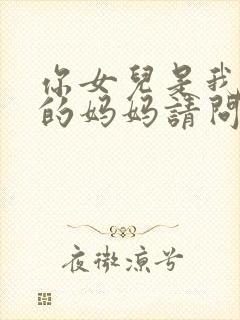 你女兒是我
的妈妈請問
夜微涼兮